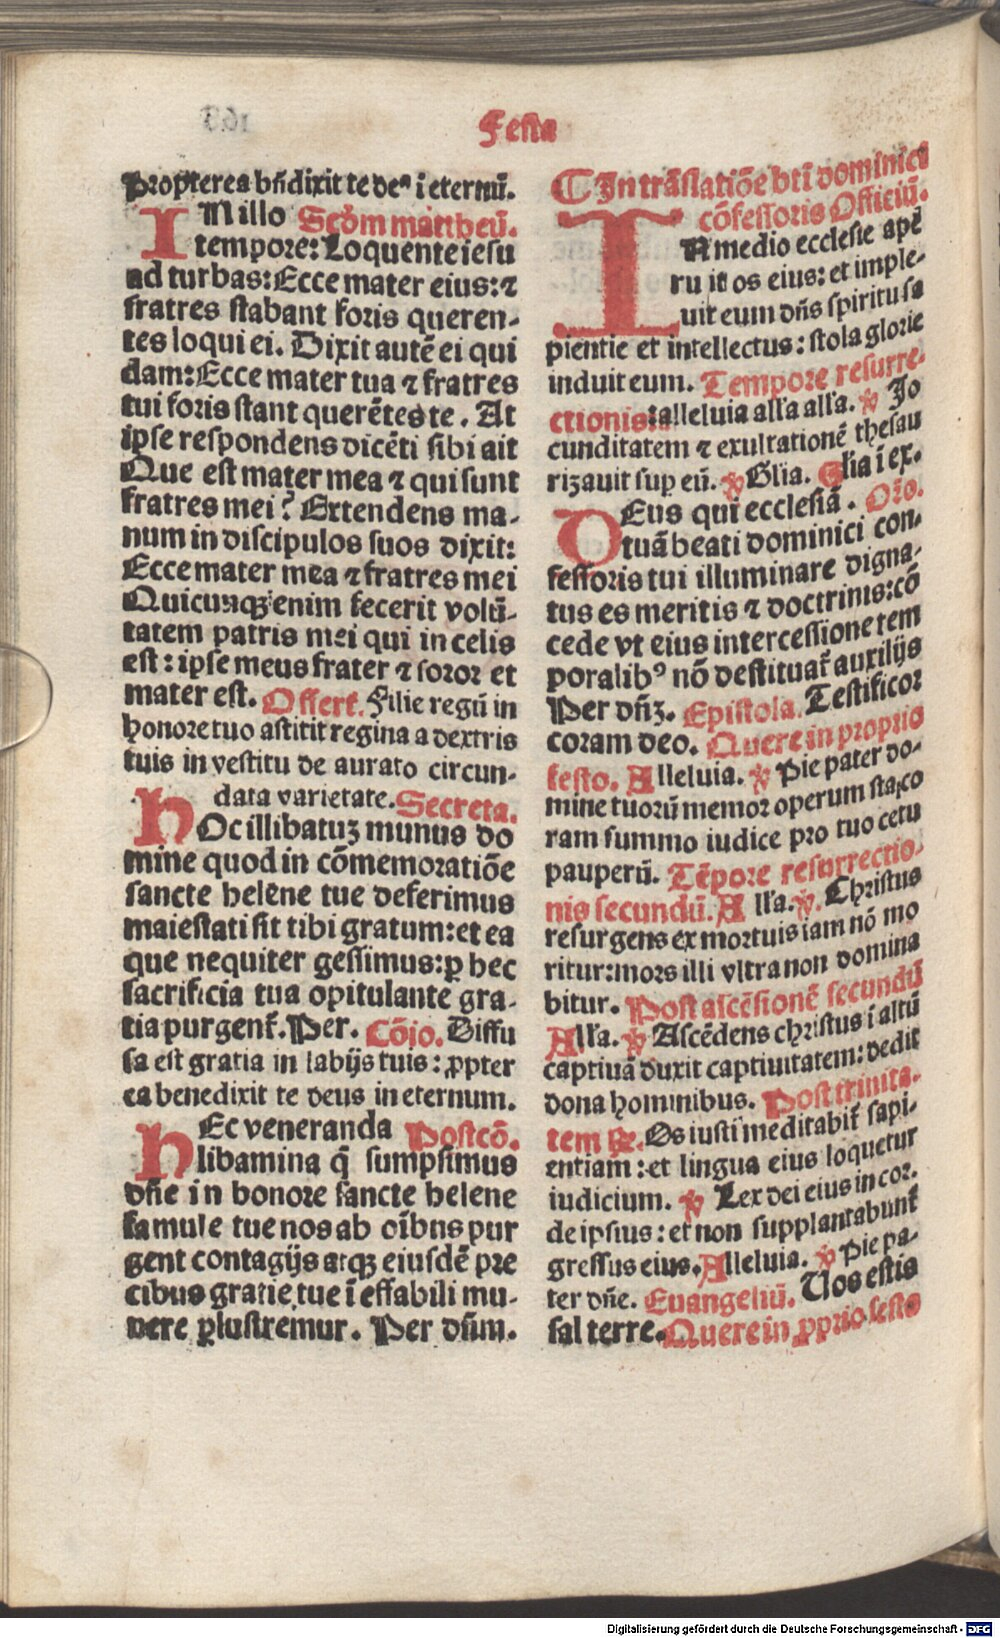 Festa
Propterea bn̄dixit te deꝰ ī eternū.
IN illo Scd̄m mattheū.
tempore: Loquente iesu
ad turbas: Ecce mater eius: ⁊
fratres stabant foris queren-
tes loqui ei. Dixit autē ei qui
dam: Ecce mater tua ⁊ fratres
tui foris stant querētes te. At
ipse respondens dicēti sibi ait
Que est mater mea ⁊ qui sunt
fratres mei? Extendens ma-
num in discipulos suos dixit:
Ecce mater mea ⁊ fratres mei
Quicunqꝫ enim fecerit volū-
tatem patris mei qui in celis
est: ipse meus frater ⁊ soror et
mater est. Offert. Filie regū in
honore tuo astitit regina a dextris
tuis in vestitu de aurato circun-
data varietate. Secreta.
HOc illibatuꝫ munus do
mine quod in cōmemoratiōe
sancte helene tue deferimus
maiestati sit tibi gratum: et ea
que nequiter gessimus: ꝑ hec
sacrificia tua opitulante gra-
tia purgent̄. Per. Cōio. Diffu
sa est gratia in labijs tuis: ꝓpter
ea benedixit te deus in eternum.
HEc veneranda Postcō.
libamina q̄ sumpsimus
dn̄e in honore sancte helene
famule tue nos ab oībus pur
gent contagijs atqꝫ eiusdē pre
cibus gratie tue īeffabili mu-
nere ꝑlustremur. Per dn̄m.
¶ In trāslatiōe bt̄i dominici
cōfessoris Officiū.
IN medio ecclesie apē
ruit os eius: et imple-
uit eum dn̄s spiritu sa
pientie et intellectus: stola glorie
induit eum. Tempore resurre-
ctionis: alleluia all'a all'a. ℣ Jo
cunditatem ⁊ exultationē thesau
rizauit sup eū. ℣ Gl̄ia. Gl̄ia ī ex.
DEus qui ecclesiā. Or̄o.
tuā beati dominici con-
fessoris tui illuminare digna-
tus es meritis ⁊ doctrinis: cō
cede vt eius intercessione tem
poralibꝰ nō destituat̄ auxilijs
Per dn̄ꝫ. Epistola. Testificor
coram deo. Quere in proprio
festo. Alleluia. ℣ Pie pater do-
mine tuorū memor operum sta co
ram summo iudice pro tuo cetu
pauperū. Tēpore resurrectio-
nis secundū. All'a. ℣. Christus
resurgens ex mortuis iam nō mo
ritur: mors illi vltra non domina
bitur. Post ascēsionē secundū
All'a. ℣ Ascēdens christus ī altū
captiuā duxit captiuitatem: dedit
dona hominibus. Post trinita-
tem ℟. Os iusti meditabit̄ sapi-
entiam: et lingua eius loquetur
iudicium. ℣ Lex dei eius in cor-
de ipsius: et non supplantabunt̄
gressus eius. Alleluia. ℣ Pie pa-
ter dn̄e. Euangeliū. Uos estis
sal terre. Quere in ꝓprio festo
Digitalisierung gefördert durch die Deutsche Forschungsgemeinschaft - DFG